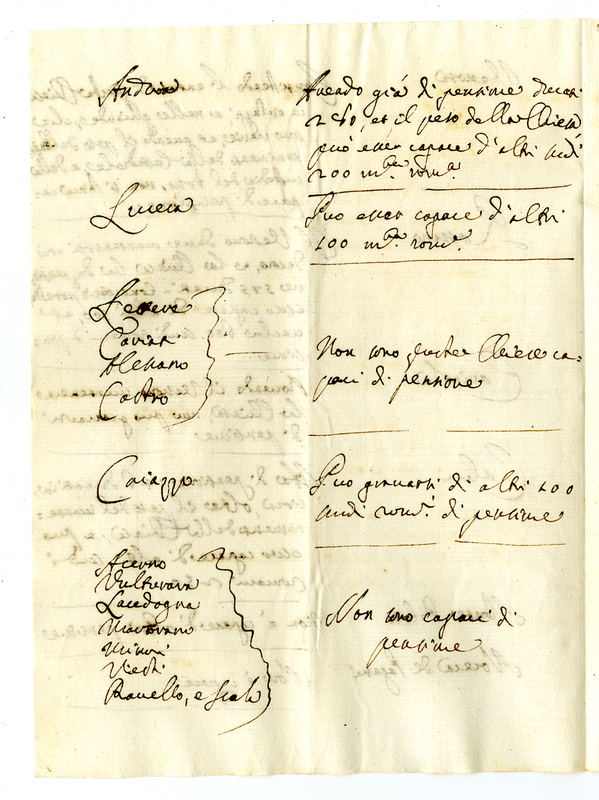 Andria
Avendo già di pensione ducati
260, et il peso della Chiesa
può esser capace d'altri scudi
200 m.ta rom.i
Lucera
Puo esser capace d'altri
100 m.ta rom.i
Lettere
Cariati
Alessano
Castro
Non sono queste Chiese ca=
paci di pensione
Caiazzo
Puo gravarsi di altri 100
scudi rom.i di pensione
Acerno
Vulturara
Lacedogna
Minori
Viesti
Ravello, e Scala
Non sono capaci di
pensione